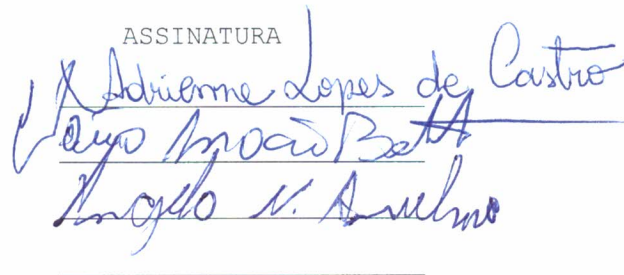 ASSINATURA
Adrienne Lopes de Castro
Angelo N. Anselmo